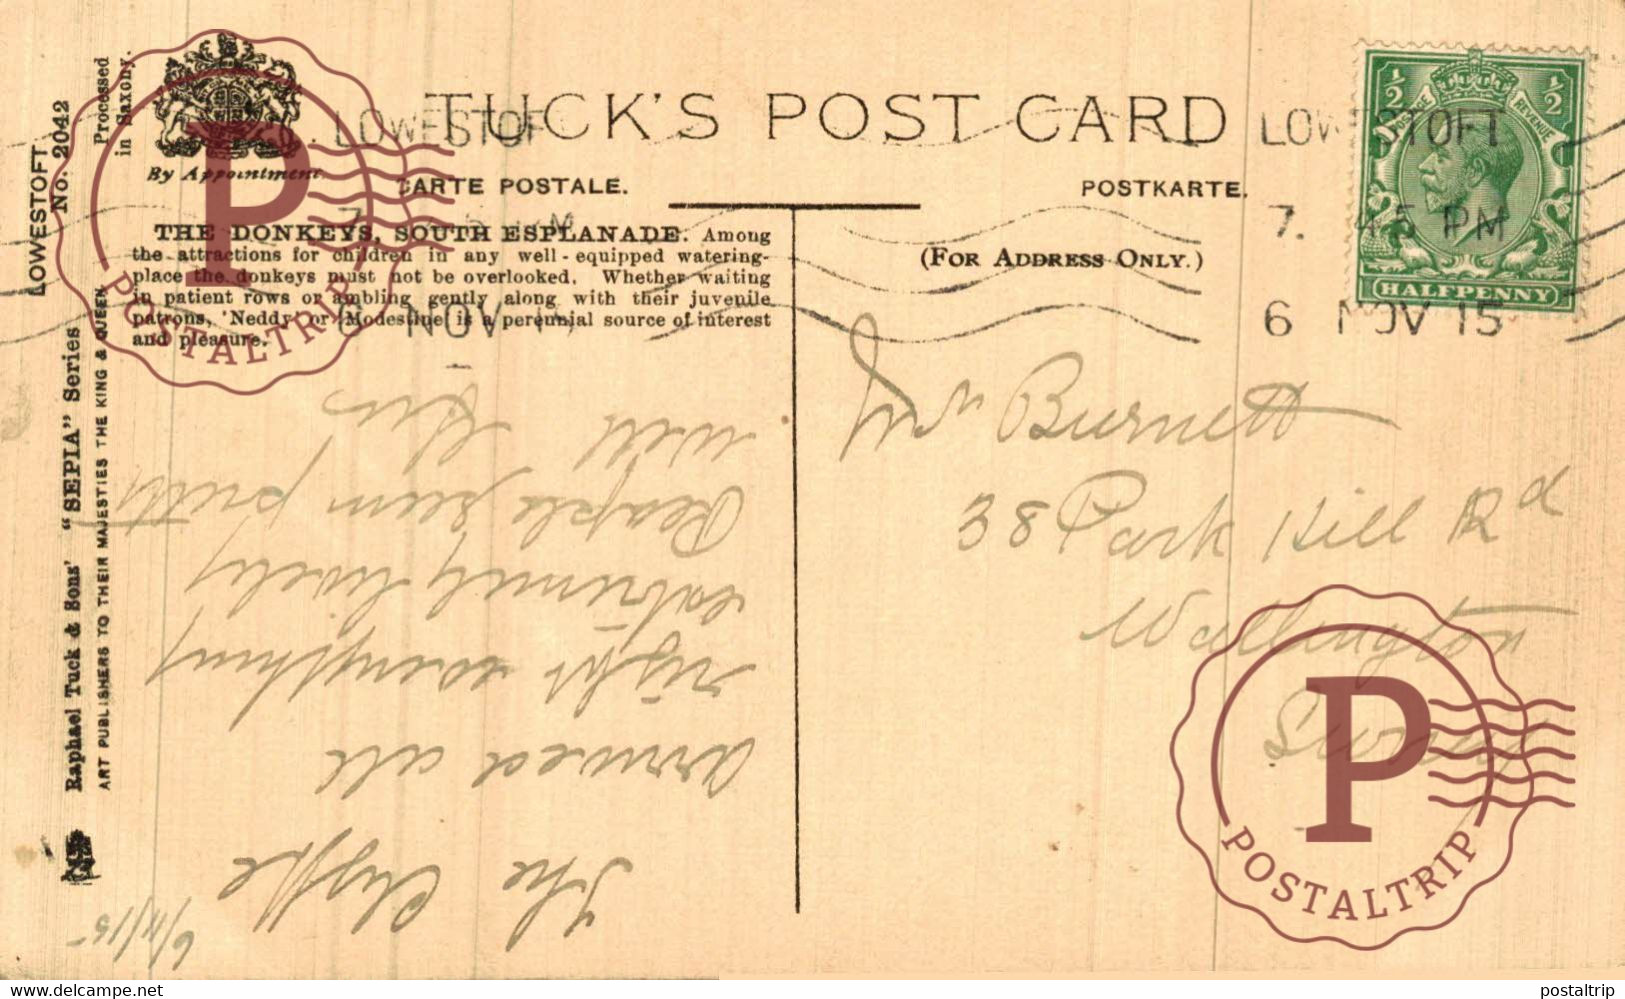 TUCK'S POST CARD
By Appointment.
CARTE POSTALE.
POSTKARTE.
THE DONKEYS, SOUTH ESPLANADE. Among
the attractions for children in any well-equipped watering-
place the donkeys must not be overlooked. Whether waiting
in patient rows or ambling gently along with their juvenile
patrons, 'Neddy' or 'Modestine' is a perennial source of interest
and pleasure.
(FOR ADDRESS ONLY.)
LOWESTOFT
No. 2042
Processed
in Saxony.
Raphael Tuck & Sons' "SEPIA" Series
ART PUBLISHERS TO THEIR MAJESTIES THE KING & QUEEN
LOWESTOFT
7. 45 PM
6 NOV 15
LOWESTOF
NOV
POSTAGE
REVENUE
½
½
HALFPENNY
Burnett
38 Park Hill Rd
Wallington
Surrey
6/11/15
The Cliffe
arrived all
right everything
extremely lively
People seem pretty
well.
P
POSTALTRIP
P
POSTALTRIP
www.delcampe.net
postaltrip